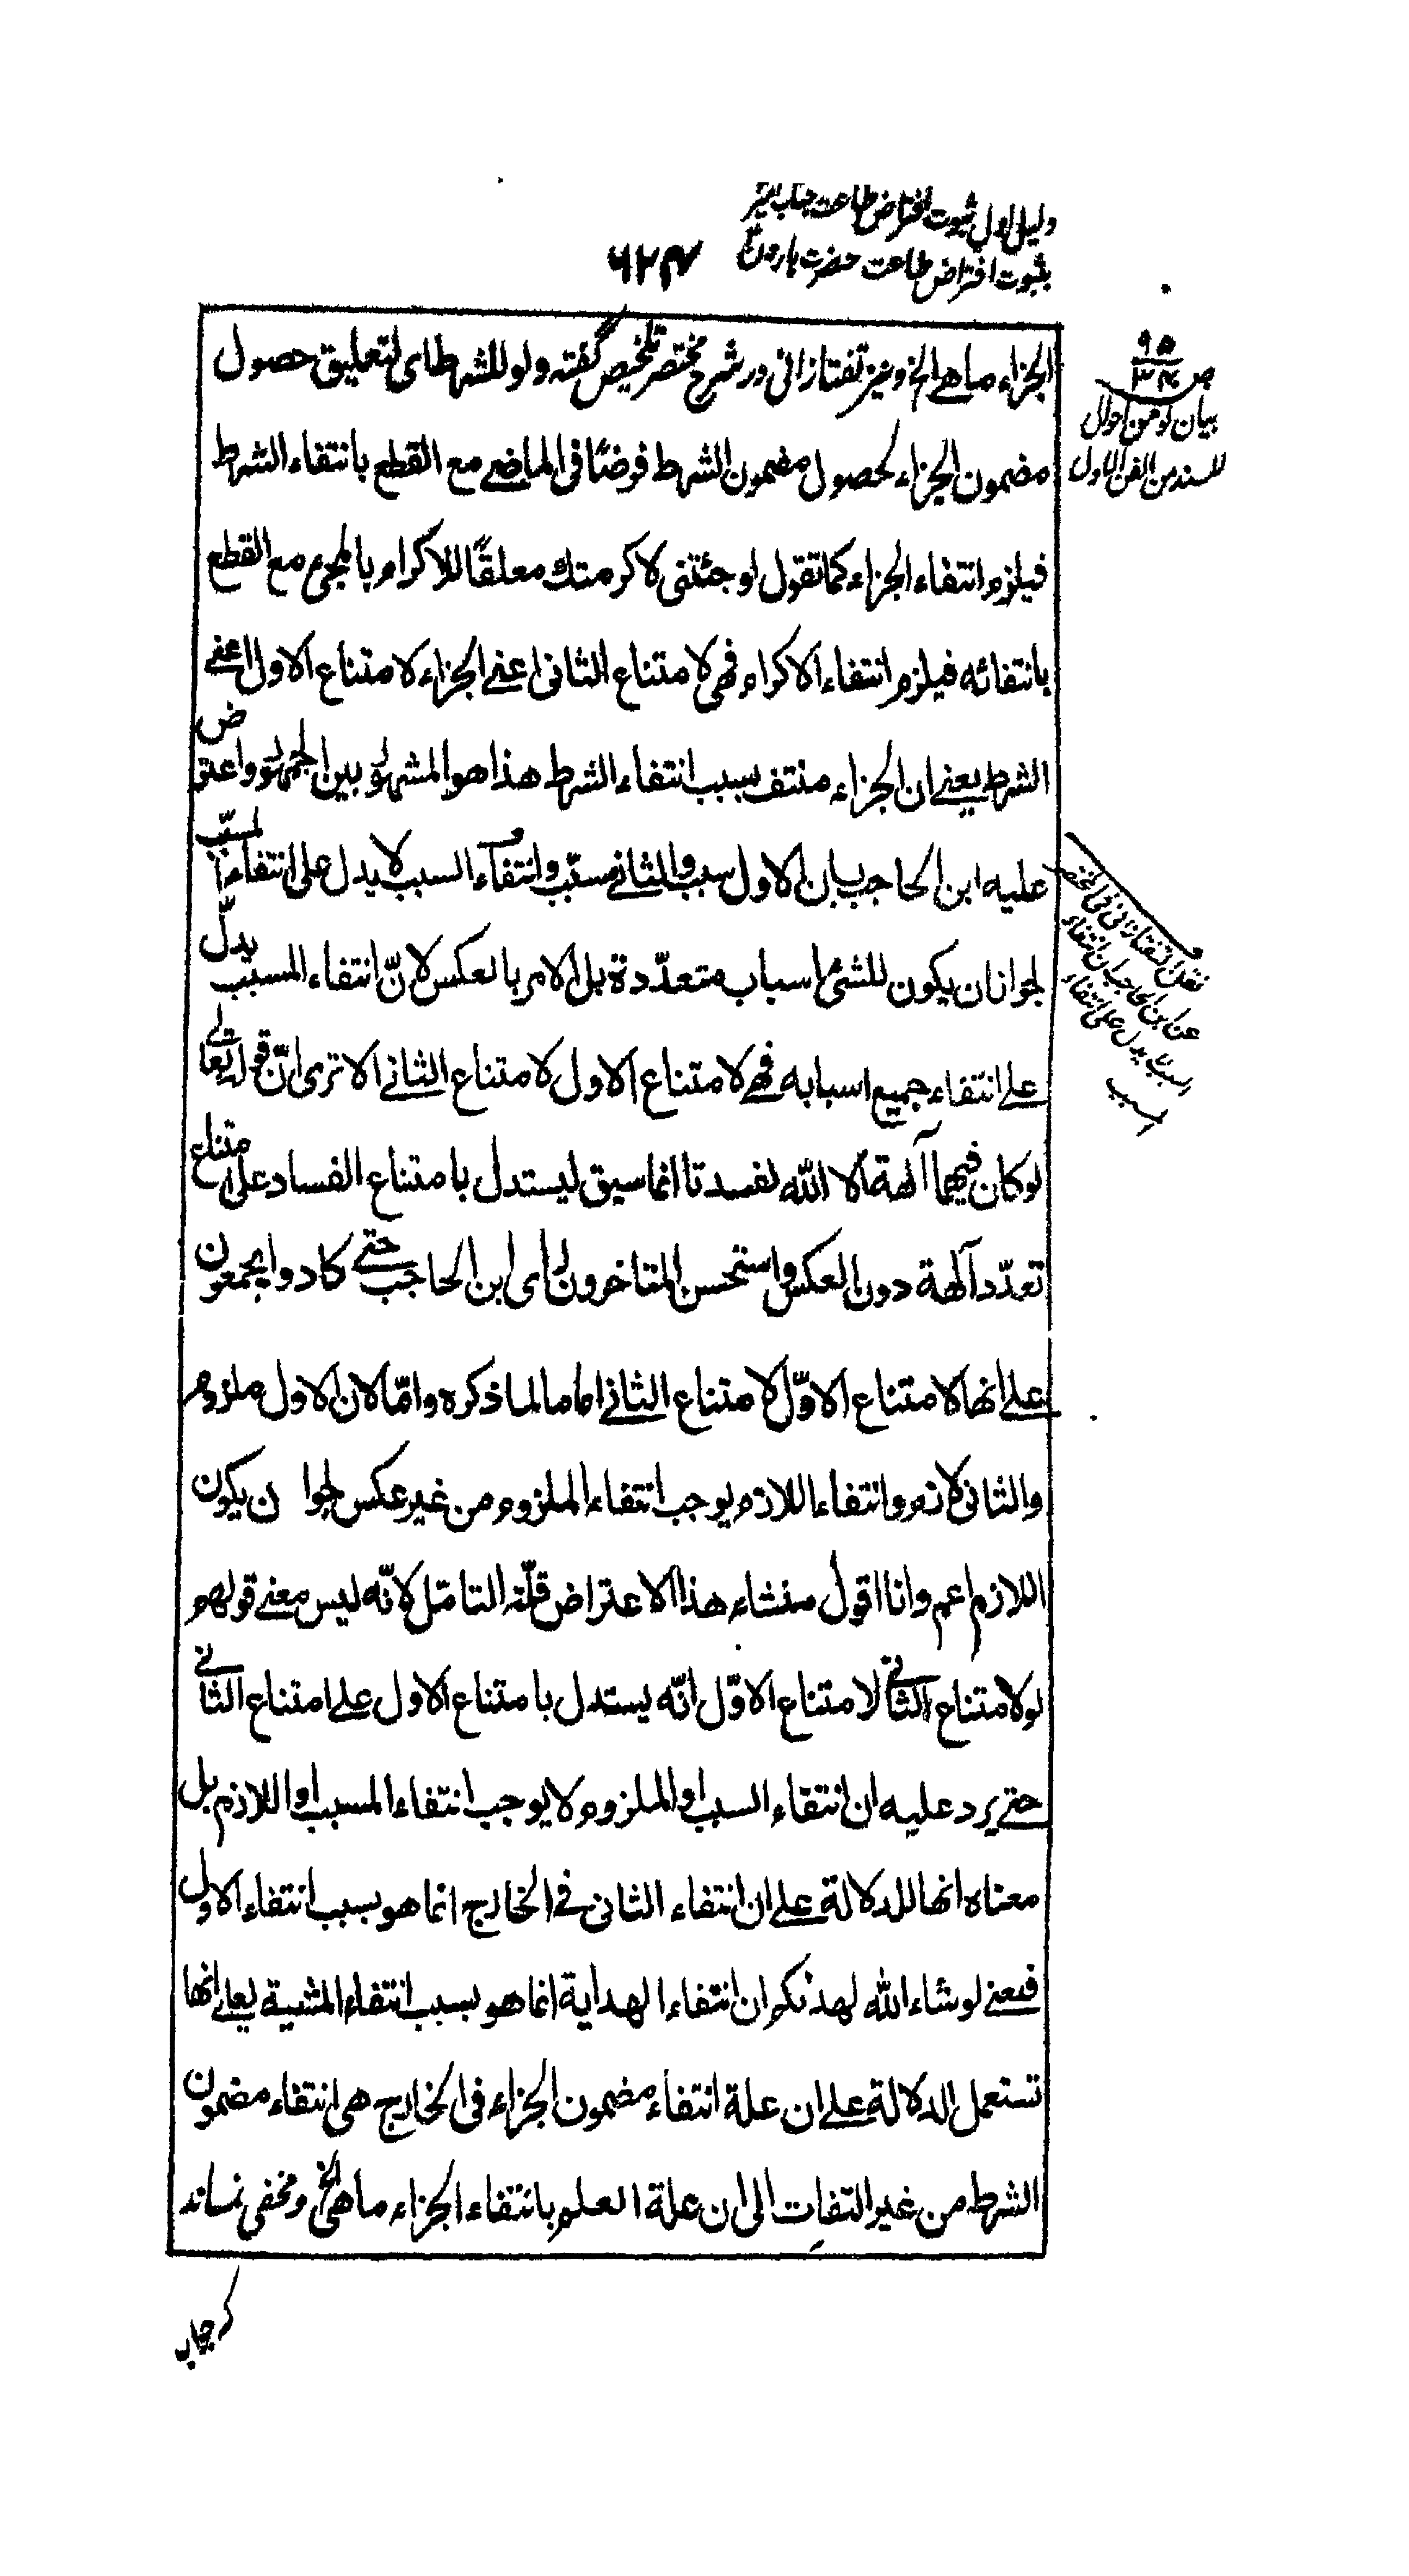 دلیل اول ثبوت افتراض طاعت جناب امیر
بثبوت افتراض طاعت حضرت هارون
۶۲۴
الجزاء ما هی الخ و نیز تفتازانی در شرح مختصر تلخیص گفته و لو للشرط ای لتعلیق حصول
مضمون الجزاء لحصول مضمون الشرط فرضًا فی الماضی مع القطع بانتفاء الشرط
فیلزم انتفاء الجزاء کما تقول لو جئتنی لاکرمتک معلقًا للاکرام بالمجیء مع القطع
بانتفائه فیلزم انتفاء الاکرام فهی لامتناع الثانی اعنی الجزاء لامتناع الاول اعنی
الشرط یعنی ان الجزاء منتف بسبب انتفاء الشرط هذا هو المشهور بین الجمهور و اعترض
علیه ابن الحاجب بان الاول سبب والثانی مسبّب وانتفاء السبب لا یدل علی انتفاء المسبّب
لجوازان یکون للشیٔ اسباب متعدّدة بل الامر بالعکس لانّ انتفاء المسبب یدلّ
علی انتفاء جمیع اسبابه فهی لامتناع الاول لامتناع الثانی الا تری انّ قوله تعالی
لو کان فیهما آلهة الا الله لفسدتا انما سیق لیستدل بامتناع الفساد علی امتناع
تعدّد آلهة دون العکس واستحسن المتاخرون رای ابن الحاجب حتی کادوا یجمعون
علی انها لامتناع الاوّل لامتناع الثانی اما لما ذکره وامّا لان الاول ملزوم
والثانی لازم وانتفاء اللازم یوجب انتفاء الملزوم من غیر عکس لجوا ن یکون
اللازم اعم وانا اقول منشاء هذا الاعتراض قلّة التامّل لانّه لیس معنی قولهم
لو لامتناع الثانی لامتناع الاوّل انّه یستدل بامتناع الاول علی امتناع الثانی
حتی یرد علیه ان انتفاء السبب او الملزوم لا یوجب انتفاء المسبب او اللازم بل
معناه انها للدلالة علی ان انتفاء الثانی فی الخارج انما هو بسبب انتفاء الاول
فمعنی لو شاء الله لهدٰىکم ان انتفاء الهدایة انما هو بسبب انتفاء المشیة یعنی انها
تستعمل للدلالة علی ان علة انتفاء مضمون الجزاء فی الخارج هی انتفاء مضمون
الشرط من غیر التفات الی ان علة العلم بانتفاء الجزاء ما هی الخ و مخفی نماند
ص ۹۵
۳۴
بیان لو من احوال
المسند من الفن الاول
نقل التفتازانی فی المختصر
عن ابن الحاجب ان انتفاء
السبب لا یدل علی انتفاء
المسبب